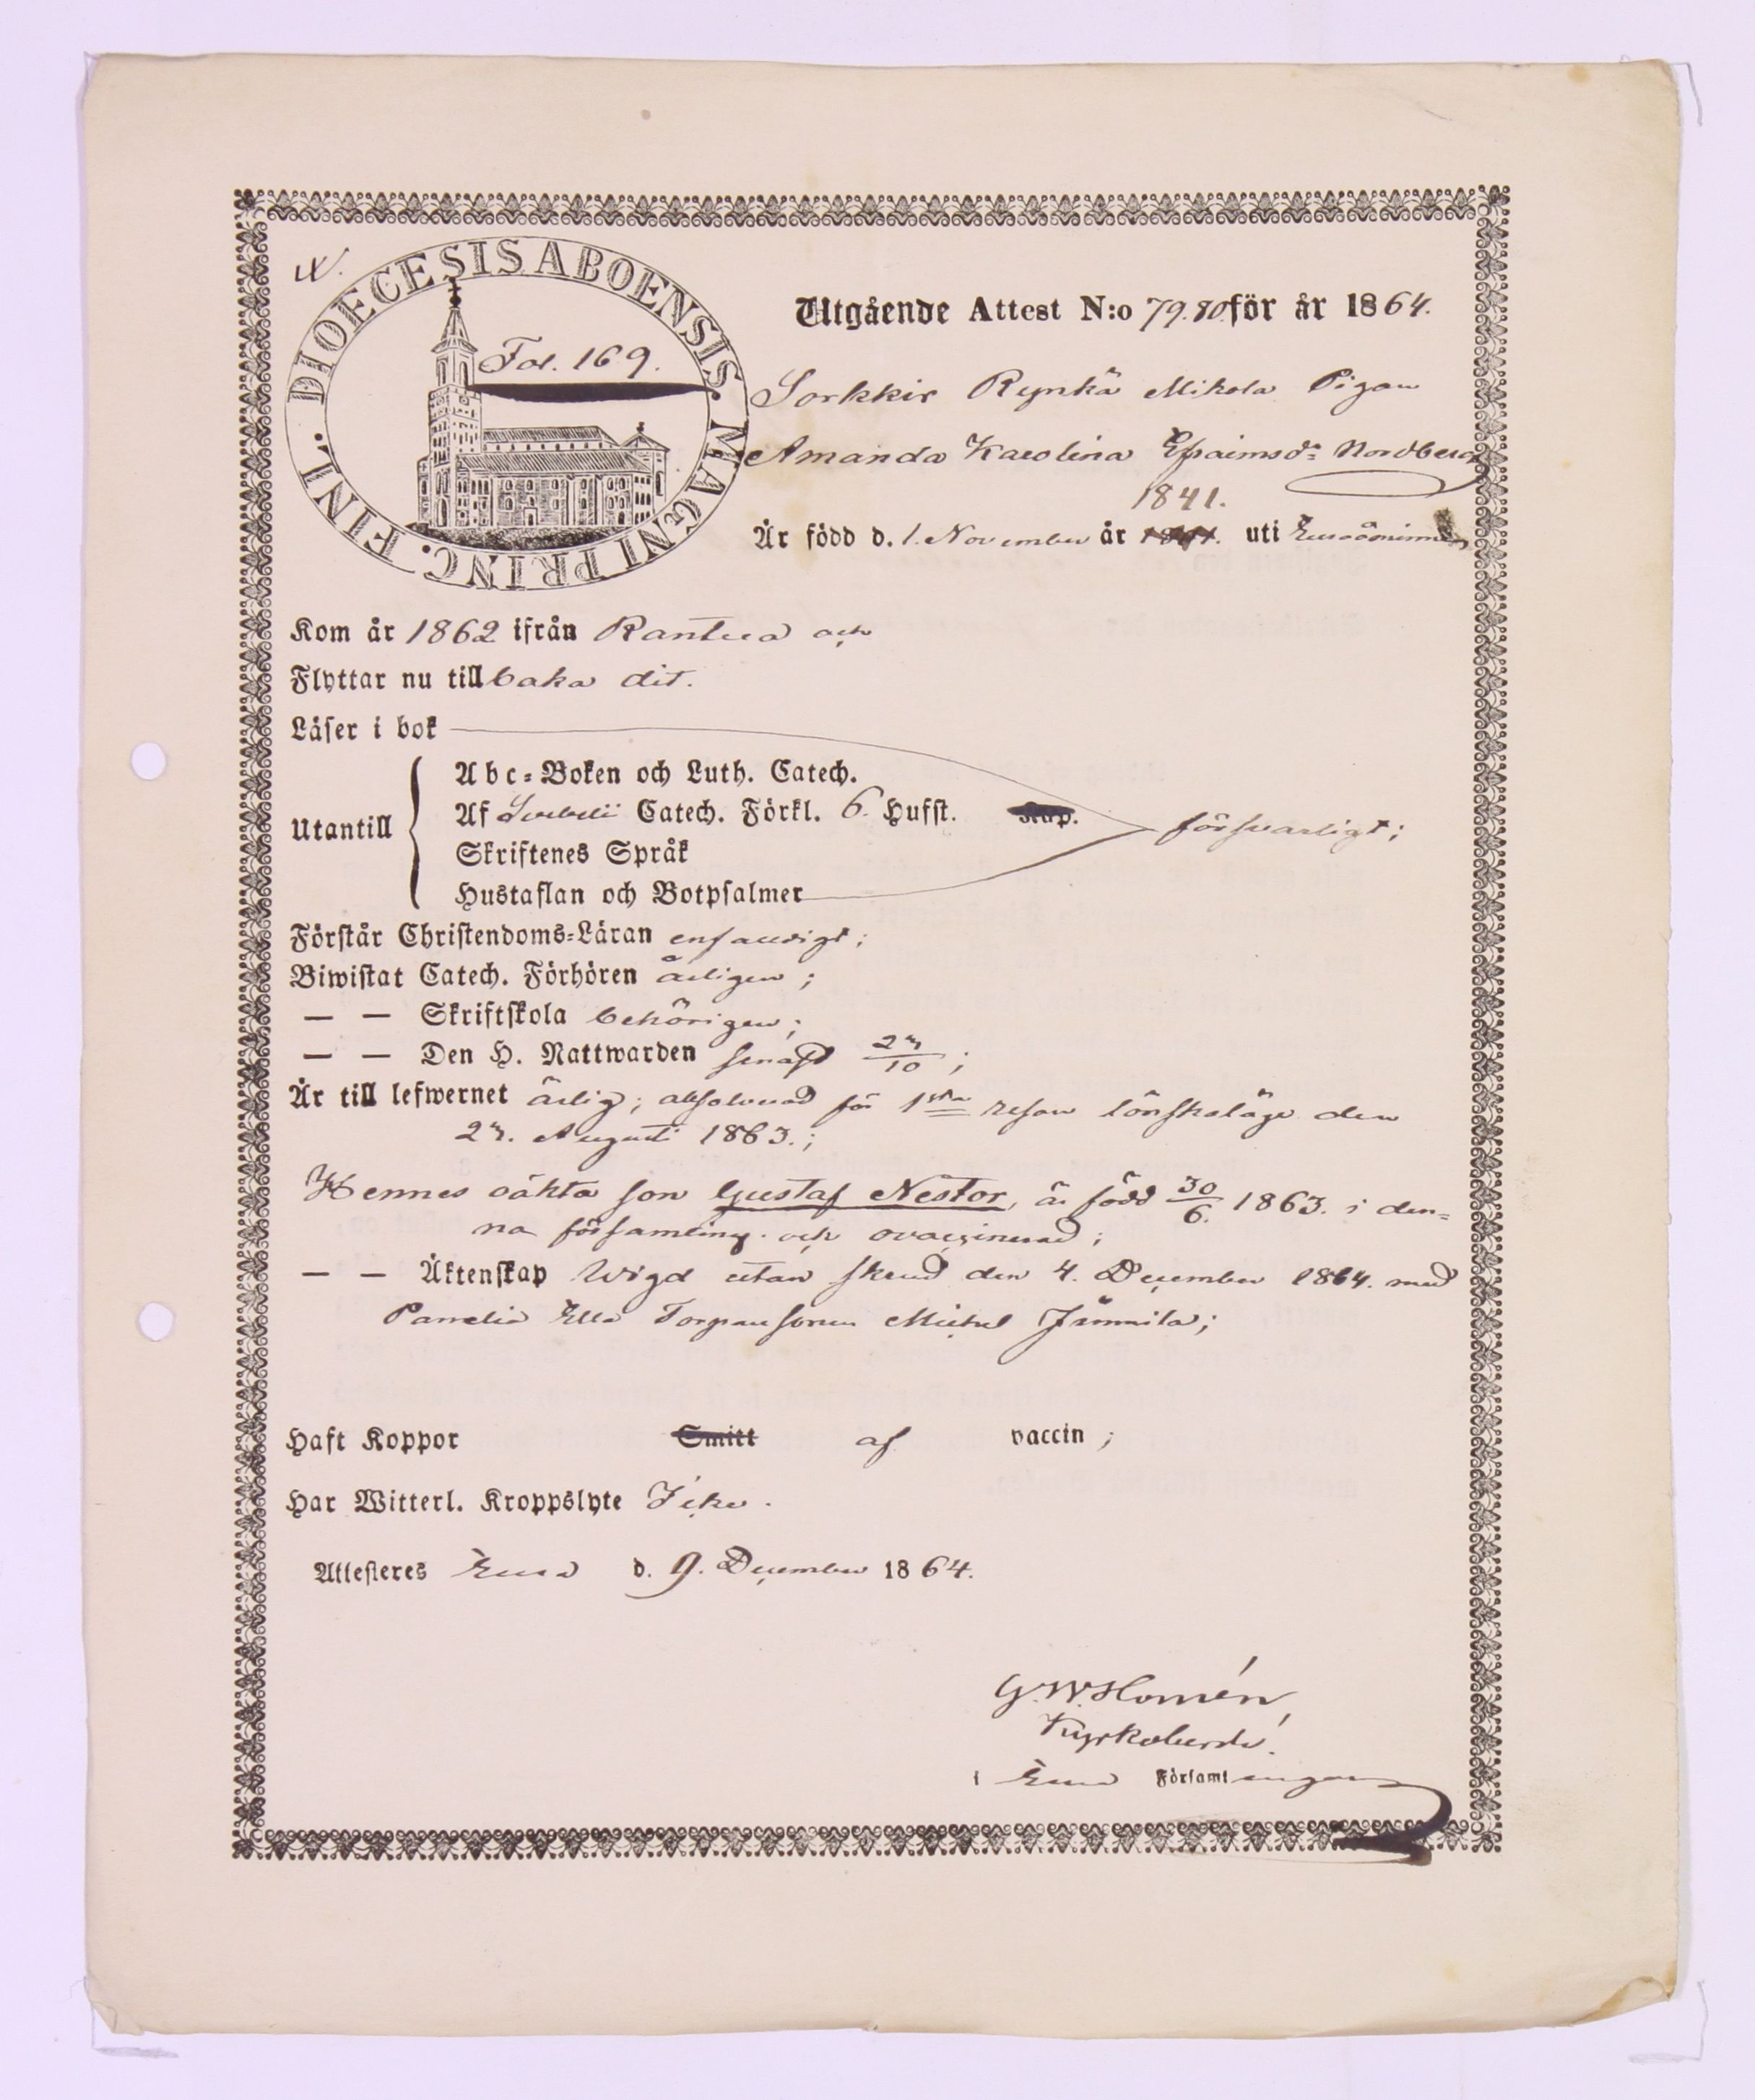 DIOECESIS ABOENSIS. MAGNI PRINC. FINL.
Fol. 169.
Utgående Attest N:o 79.80 för år 1864.
Sorkkis Rynkä Mikola Pigan
Amanda Karolina Efraimsd:r Nordberg
1841.
Är född d. 1. November år uti
Kom år 1862 ifrån Rantua och
Flyttar nu tillbaka dit.
Läser i bok
Utantill
Abc-Boken och Luth. Catech.
Af Svebelii Catech. Förkl. 6. Hufst. Kap. försvarligt;
Skriftenes Språk
Hustaflan och Botpsalmer
Förstår Christendoms-Läran enfaldigt;
Biwistat Catech. Förhören årligen;
— — Skriftskola behörigen;
— — Den H. Nattwarden senast /10;
Är till lefwernet ärlig; absolverad för 1sta resan lönskaläge den
Augusti 1863.;
Hennes oäkta son Gustaf Nestor, är född 30/6. 1863. i den-
na församling och ovaccinerad;
— — Äktenskap Wigd utan skrud den 4. December 1864. med
Torparesonen Michel
Haft Koppor Smitt af vaccin;
Har Witterl. Kroppslyte Icke.
Attesteres Eura d. 9. December 1864.
G. W. Homén,
Kyrkoherde.
i Eura Församlingar